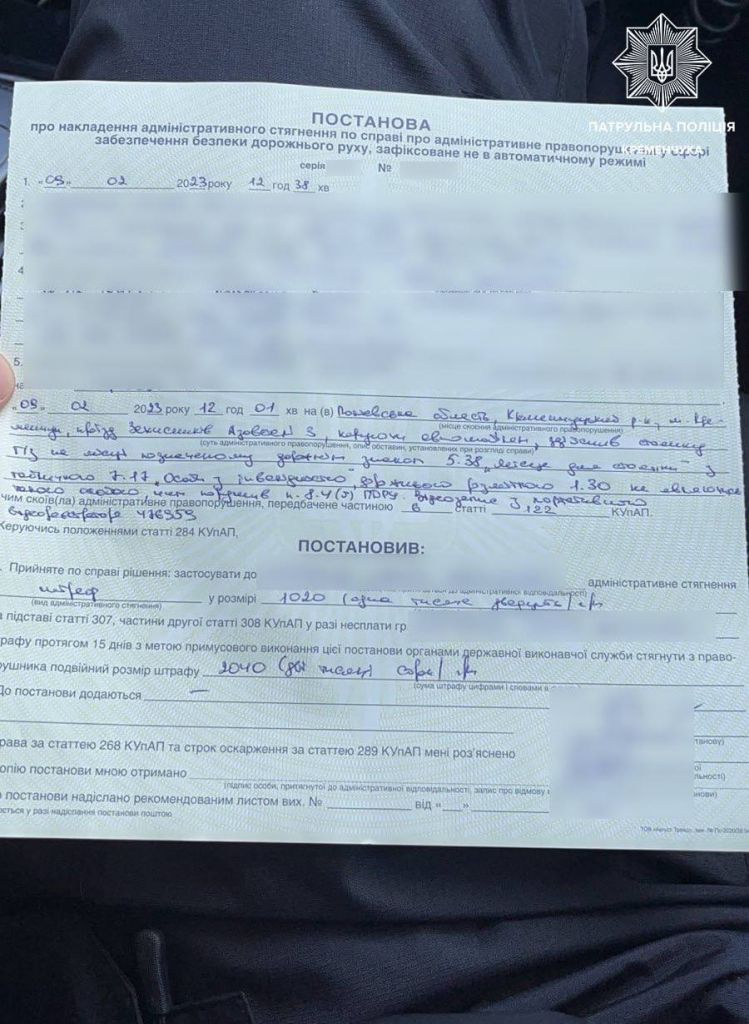 ПАТРУЛЬНА ПОЛІЦІЯ
КРЕМЕНЧУКА
ПОСТАНОВА
про накладення адміністративного стягнення по справі про адміністративне правопорушення у сфері
забезпечення безпеки дорожнього руху, зафіксоване не в автоматичному режимі
серія №
1. „09" 02 2023 року 12 год 38 хв
2.
3.
4.
5.
на
„09" 02 2023 року 12 год 01 хв на (в) Полтавська область, Кременчуцький р-н, м. Кре-
(місце скоєння адміністративного правопорушення)
менчук, проїзд Захисників Азовсталі 3 керуючи автомобілем, здійснив стоянку
(суть адміністративного правопорушення, опис обставин, установлених при розгляді справи)
Т/З на місці позначеному дорожнім знаком 5.38 „Місце для стоянки" з
табличкою 7.17 „Особи з інвалідністю" дорожньою розміткою 1.30 не являючись
чим порушив п. 8.4 (г) ПДРУ. Відеозапис з портативного
чим скоїв(ла) адміністративне правопорушення, передбачене частиною 6 статті 122 КУпАП.
відеореєстратора 476959
Керуючись положеннями статті 284 КУпАП,
ПОСТАНОВИВ:
. Прийняте по справі рішення: застосувати до адміністративне стягнення
до адміністративної відповідальності)
штраф у розмірі 1020 (одна тисяча двадцять) грн
(вид адміністративного стягнення)
а підставі статті 307, частини другої статті 308 КУпАП у разі несплати гр.
трафу протягом 15 днів з метою примусового виконання цієї постанови органами державної виконавчої служби стягнути з право-
рушника подвійний розмір штрафу 2040 (дві тисячі сорок) грн
(сума штрафу цифрами і словами в
До постанови додаються —
танову)
рава за статтею 268 КУпАП та строк оскарження за статтею 289 КУпАП мені роз'яснено
ьності)
опію постанови мною отримано
(підпис особи, притягнутої до адміністративної відповідальності, запис про відмову
нови)
о постанови надіслано рекомендованим листом вих. № від «__»
ється у разі надіслання постанови поштою